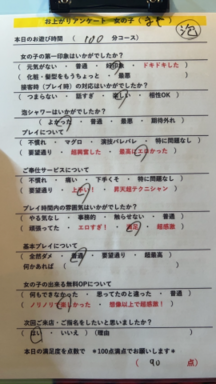 お上がりアンケート 女の子(　　)
泡
本日のお遊び時間 (100 分コース)
女の子の第一印象はいかがでしたか？
(元気がない ・ 普通 ・ 好印象 ・ ドキドキした
(化粧・髪型をもうちょっと ・ 最悪 )
接客時（プレイ時）の対応はいかがでしたか？
(つまらない ・ 固すぎ ・ 楽しい ・ 相性OK
泡シャワーはいかがでしたか？
(よかった ・ 普通 ・ 最悪 ・ 期待外れ
プレイについて
(不慣れ ・ マグロ ・ 演技バレバレ ・ 特に問題なし
(要望通り ・ 超興奮した ・ 最高にエロかった )
ご奉仕サービスについて
(不慣れ ・ 痛い ・ 下手くそ ・ 特に問題なし
(要望通り ・ 上手い！ ・ 昇天級テクニシャン )
プレイ時間内の雰囲気はいかがでしたか？
(やる気なし ・ 事務的 ・ 触らせない ・ 普通 )
(頑張ってた ・ エロすぎ！ ・ 満足 ・ 超感激
基本プレイについて
(全然ダメ ・ 普通 ・ 要望通り ・ 超最高
何かあれば (
女の子の出来る無料OPについて
(何もできなかった ・ 思ってたのと違った ・ 普通 )
(ノリノリで楽しかった ・ 想像以上で超感激！ )
次回ご来店・ご指名をしたいと思いましたか？
(はい ・ いいえ ) (理由
本日の満足度を点数で ＊100点満点でお願いします＊
( 90 点)